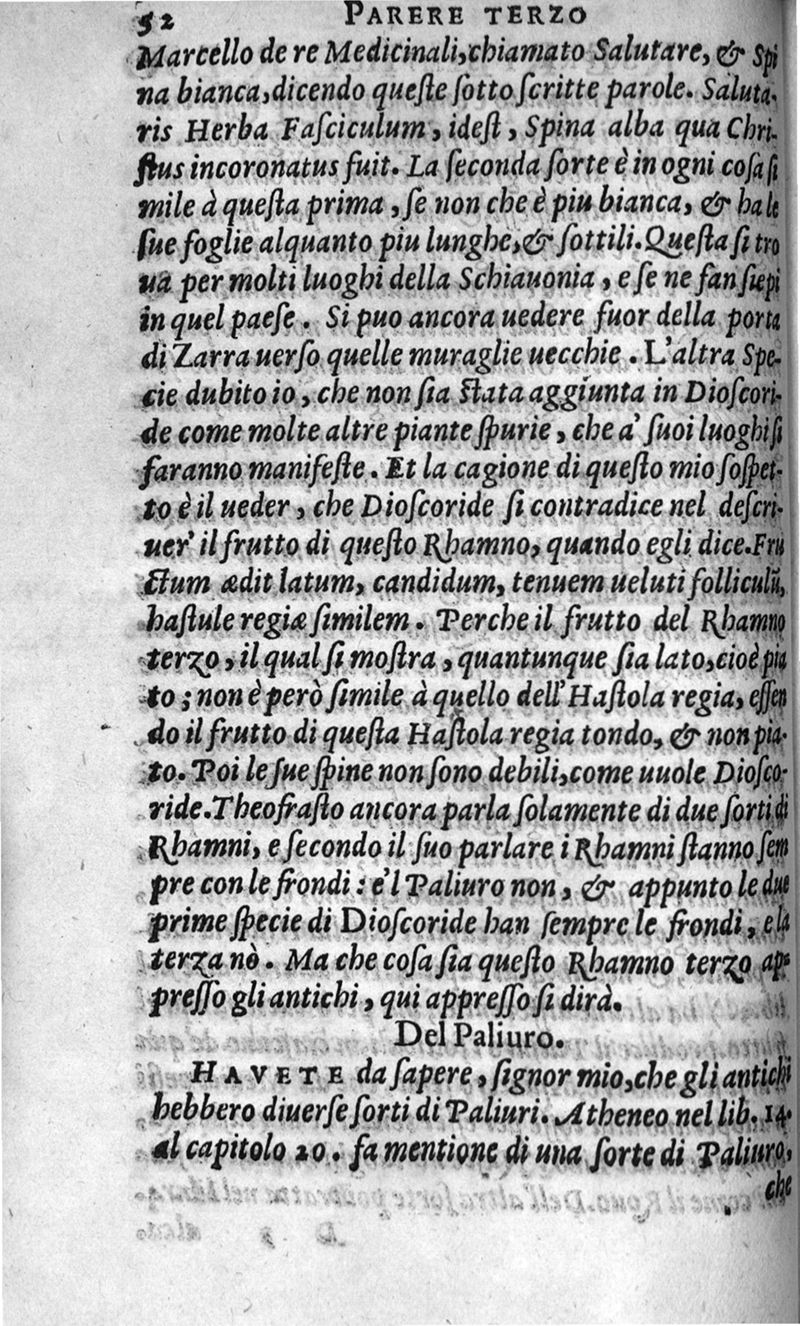 52 PARERE TERZO
Marcello de re Medicinali, chiamato Salutare, & Spi
na bianca, dicendo queſte ſotto ſcritte parole. Saluta-
ris Herba Faſciculum, ideſt, Spina alba qua Chri-
ſtus incoronatus fuit. La ſeconda ſorte è in ogni coſa ſi
mile à queſta prima, ſe non che è piu bianca, & ha le
ſue foglie alquanto piu lunghe, & ſottili. Queſta ſi tro
ua per molti luoghi della Schiauonia, e ſe ne fan ſiepi
in quel paeſe. Si puo ancora uedere fuor della porta
di Zarra uerſo quelle muraglie uecchie. L'altra Spe-
cie dubito io, che non ſia ſtata aggiunta in Dioſcori-
de come molte altre piante ſpurie, che a' ſuoi luoghi ſi
faranno manifeſte. Et la cagione di queſto mio ſoſpet-
to è il ueder, che Dioſcoride ſi contradice nel deſcri-
uer' il frutto di queſto Rhamno, quando egli dice. Fru
ctum ædit latum, candidum, tenuem ueluti folliculũ,
haſtule regiæ ſimilem. Perche il frutto del Rhamno
terzo, il qual ſi moſtra, quantunque ſia lato, cioè pia
to; non è però ſimile à quello dell'Haſtola regia, eſſen
do il frutto di queſta Haſtola regia tondo, & non pia-
to. Poi le ſue ſpine non ſono debili, come uuole Dioſco-
ride. Theofraſto ancora parla ſolamente di due ſorti di
Rhamni, e ſecondo il ſuo parlare i Rhamni ſtanno ſem
pre con le frondi: e'l Paliuro non, & appunto le due
prime ſpecie di Dioſcoride han ſempre le frondi, e la
terza nò. Ma che coſa ſia queſto Rhamno terzo ap-
preſſo gli antichi, qui appreſſo ſi dirà.
Del Paliuro.
HAVETE da ſapere, ſignor mio, che gli antichi
hebbero diuerſe ſorti di Paliuri. Atheneo nel lib. 14.
al capitolo 20. fa mentione di una ſorte di Paliuro,
che